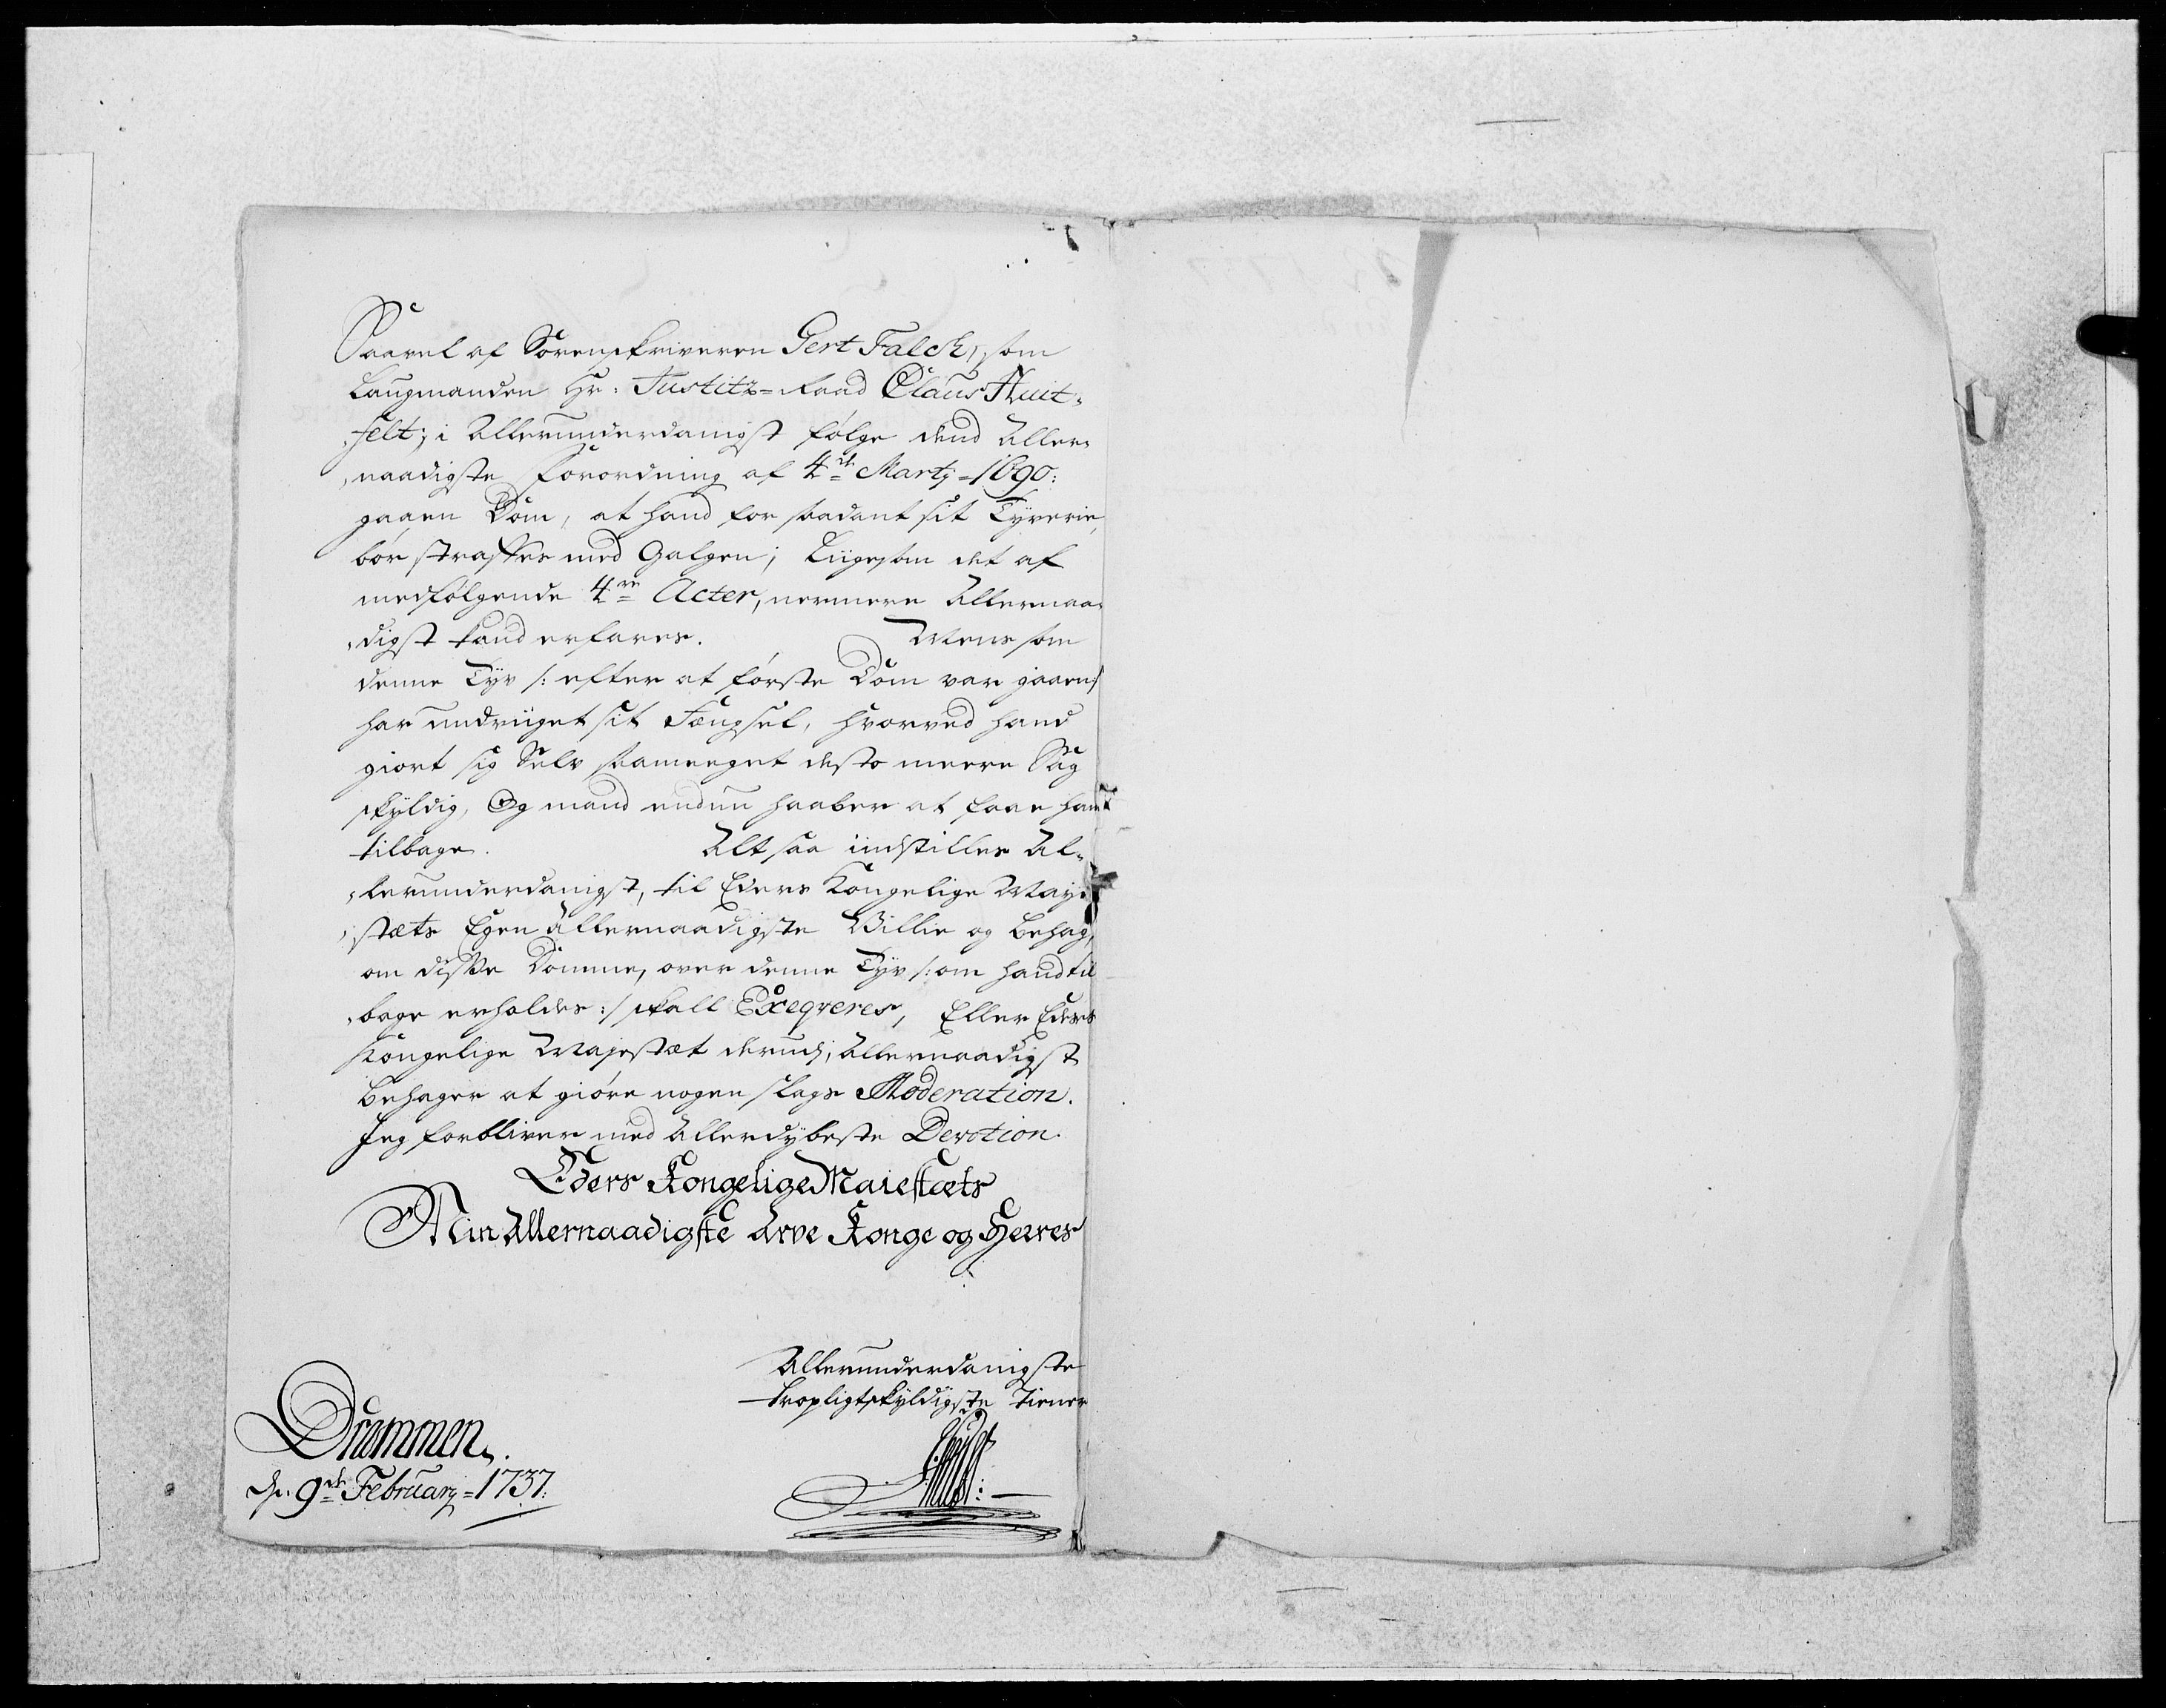 Saavel af Sorenskriveren Gert Falch, som
Laugmanden Hr: Justitz=Raad Claus Huit-
felt; i Allerunderdanigst følge dend Aller-
naadigste Forordning af 4de Martj=1690:
gaaen Dom, at hand for saadant sit Tyverie,
bør straffes med Galgen; Liigesom det af
medfølgende 4re Acter, nermere Allernaa-
digst kand erfares. Mens som
denne Tyv /: efter at første Dom var gaaen:/
har undviiget sit Fængsel, hvorved hand
giort sig Selv saameeget desto meere Sag
skyldig, Og mand endnu haaber at faae ham
tilbage. Alt saa indstilles Al-
lerunderdanigst, til Eders Kongelige May-
stæts Egen Allernaadigste Villie og Behag,
om disse Domme, over denne Tyv /: om hand til
bage erholdes :/ skall Exeqveres, Eller Eders
Kongelige Majestæt derudj, Allernaadigst
Behager at giøre nogen slags Moderation.
Jeg forbliver med Allerdybeste Devotion.
Eders Kongelige Maiestæts
Min Allernaadigste Arve Konge og Herres
Allerunderdanigste
tropligtskyldigste Tiener
Drammen.
d. 9de Februarj=1737.